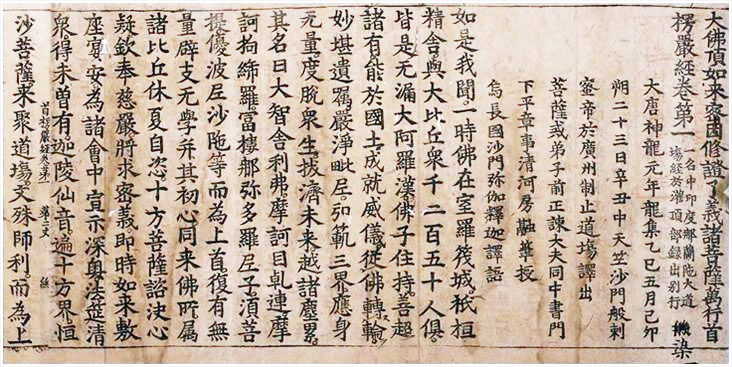 大佛頂如来密因修證了義諸菩薩萬行首
楞嚴經卷第一 一名中印度那蘭陁大道
塲經於灌頂部録出别行 染
大唐神龍元年龍集乙巳五月己卯
朔二十三日辛丑中天竺沙門般刺
蜜帝於廣州制止道塲譯出
菩薩戒弟子前正諫大夫同中書門
下平章事清河房融筆授
烏長國沙門弥伽釋迦譯語
如是我聞一時佛在室羅筏城祇桓
精舍與大比丘衆千二百五十人俱
皆是无漏大阿羅漢佛子住持善超
諸有能於國土成就威儀從佛轉輪
妙堪遺囑嚴淨毗尼弘範三界應身
无量度脫衆生拔濟未来越諸塵累
其名曰大智舎利弗摩訶目乹連摩
訶拘絺羅富樓那弥多羅尼子湏菩
提優波尼沙陁等而為上首復有無
量辟支无學并其初心同来佛所属
諸比丘休夏自恣十方菩薩諮決心
疑欽奉慈嚴將求密義即時如来敷
座宴安為諸會中宣示深奥法筵清
衆得未曽有迦陵仙音遍十方界恒
沙菩薩来聚道塲文殊師利而為上